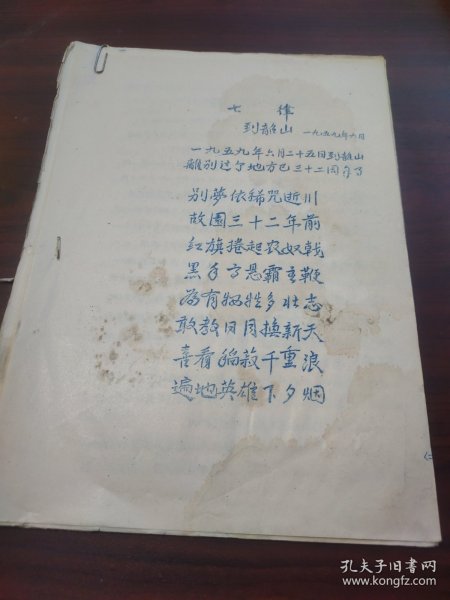 七律
到韶山 一九五九年六月
一九五九年六月二十五日到韶山
離别这个地方已三十二周年了
别夢依稀咒逝川
故園三十二年前
红旗捲起农奴戟
黑手高悬霸主鞭
为有牺牲多壮志
敢教日月換新天
喜看稻菽千重浪
遍地英雄下夕烟
孔夫子旧书网
www.kongfz.com